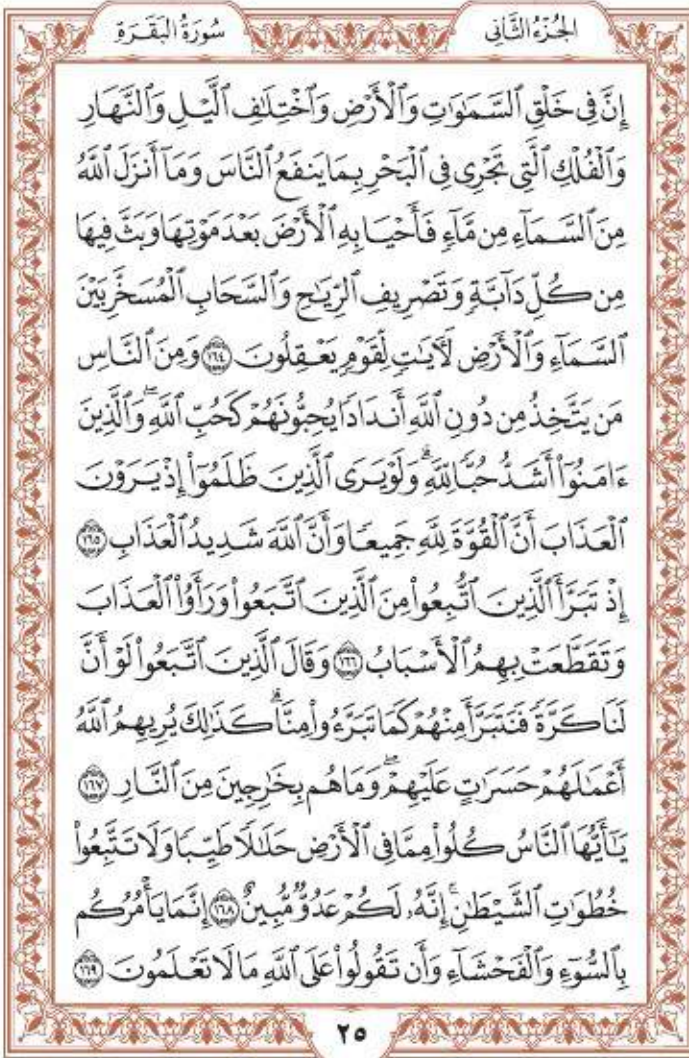 سُورَةُ البَقَرَةِ الجُزْءُ الثَّانِي
إِنَّ فِي خَلْقِ ٱلسَّمَٰوَٰتِ وَٱلْأَرْضِ وَٱخْتِلَٰفِ ٱلَّيْلِ وَٱلنَّهَارِ
وَٱلْفُلْكِ ٱلَّتِي تَجْرِي فِي ٱلْبَحْرِ بِمَا يَنفَعُ ٱلنَّاسَ وَمَآ أَنزَلَ ٱللَّهُ
مِنَ ٱلسَّمَآءِ مِن مَّآءٍ فَأَحْيَا بِهِ ٱلْأَرْضَ بَعْدَ مَوْتِهَا وَبَثَّ فِيهَا
مِن كُلِّ دَآبَّةٍ وَتَصْرِيفِ ٱلرِّيَٰحِ وَٱلسَّحَابِ ٱلْمُسَخَّرِ بَيْنَ
ٱلسَّمَآءِ وَٱلْأَرْضِ لَأٓيَٰتٍ لِّقَوْمٍ يَعْقِلُونَ ١٦٤ وَمِنَ ٱلنَّاسِ
مَن يَتَّخِذُ مِن دُونِ ٱللَّهِ أَندَادًا يُحِبُّونَهُمْ كَحُبِّ ٱللَّهِۖ وَٱلَّذِينَ
ءَامَنُوٓا۟ أَشَدُّ حُبًّا لِّلَّهِۗ وَلَوْ يَرَى ٱلَّذِينَ ظَلَمُوٓا۟ إِذْ يَرَوْنَ
ٱلْعَذَابَ أَنَّ ٱلْقُوَّةَ لِلَّهِ جَمِيعًا وَأَنَّ ٱللَّهَ شَدِيدُ ٱلْعَذَابِ ١٦٥
إِذْ تَبَرَّأَ ٱلَّذِينَ ٱتُّبِعُوا۟ مِنَ ٱلَّذِينَ ٱتَّبَعُوا۟ وَرَأَوُا۟ ٱلْعَذَابَ
وَتَقَطَّعَتْ بِهِمُ ٱلْأَسْبَابُ ١٦٦ وَقَالَ ٱلَّذِينَ ٱتَّبَعُوا۟ لَوْ أَنَّ
لَنَا كَرَّةً فَنَتَبَرَّأَ مِنْهُمْ كَمَا تَبَرَّءُوا۟ مِنَّاۗ كَذَٰلِكَ يُرِيهِمُ ٱللَّهُ
أَعْمَٰلَهُمْ حَسَرَٰتٍ عَلَيْهِمْۖ وَمَا هُم بِخَٰرِجِينَ مِنَ ٱلنَّارِ ١٦٧
يَٰٓأَيُّهَا ٱلنَّاسُ كُلُوا۟ مِمَّا فِي ٱلْأَرْضِ حَلَٰلًا طَيِّبًا وَلَا تَتَّبِعُوا۟
خُطُوَٰتِ ٱلشَّيْطَٰنِۚ إِنَّهُۥ لَكُمْ عَدُوٌّ مُّبِينٌ ١٦٨ إِنَّمَا يَأْمُرُكُم
بِٱلسُّوٓءِ وَٱلْفَحْشَآءِ وَأَن تَقُولُوا۟ عَلَى ٱللَّهِ مَا لَا تَعْلَمُونَ ١٦٩
٢٥